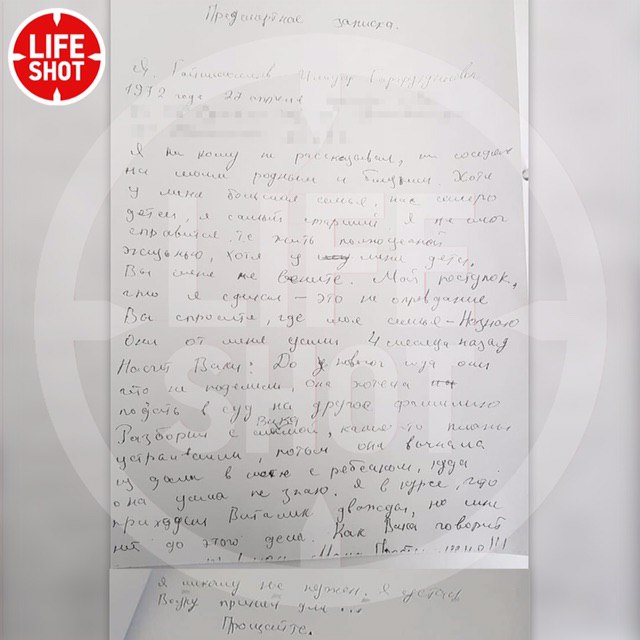 LIFE
SHOT
Предсмертное записка.
Я. Ильдар
1972 года 27 апреля
Я ни кому не рассказывал, ни соседям
на моим родным и близким. Хотя
у меня большая семья, нас семеро
детей, я самый старший я не смог
справится, т.е жить полноценной
жизнью, хотя у меня дети.
Вы меня не вените. Мой поступок,
что я сделал – это не оправдание
Вы спросите, где моя семья – Незнаю
Они от меня ушли 4 месяца назад
Насчёт Вики: До нового года они
что не поделили, она хотела
подать в суд на другое фамилию
Разборки с Вика мамой, какие то планы
устраивали, потом она начала
из дома с ребёнком, куда
она ушла не знаю. Я в курсе, что
приходил Виталик дважды, но мне
нет до этого дела. Как Вика говорит
я никому не нужен. Я устал
Вещку принял ушёл ...
Прощайте.
LIFE
SHOT